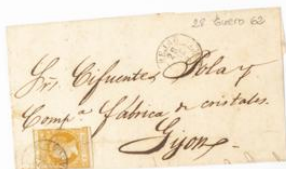 28 Enero 62
Srs. Cifuentes, Pola y
Comp.ª fábrica de cristales.
Gijon